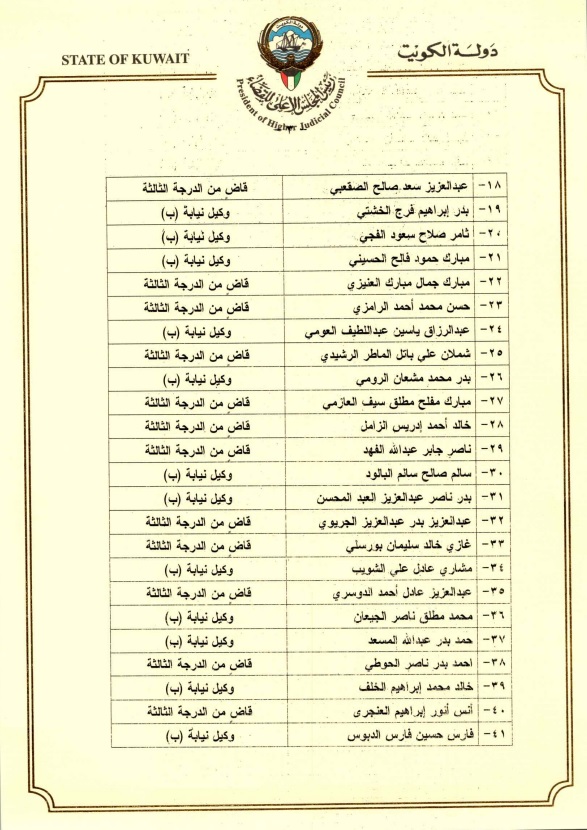 STATE OF KUWAIT
دولة الكويت
رئيس المجلس الأعلى للقضاء
President of Higher Judicial Council
١٨- عبدالعزيز سعد صالح الصقعبي قاضٍ من الدرجة الثالثة
١٩- بدر إبراهيم فرج الخشتي وكيل نيابة (ب)
٢٠- ثامر صلاح سعود الفجي وكيل نيابة (ب)
٢١- مبارك حمود فالح الحسيني وكيل نيابة (ب)
٢٢- مبارك جمال مبارك العنيزي قاضٍ من الدرجة الثالثة
٢٣- حسن محمد أحمد الرامزي قاضٍ من الدرجة الثالثة
٢٤- عبدالرزاق ياسين عبداللطيف العومي وكيل نيابة (ب)
٢٥- شملان علي باتل الماطر الرشيدي قاضٍ من الدرجة الثالثة
٢٦- بدر محمد مشعان الرومي وكيل نيابة (ب)
٢٧- مبارك مفلح مطلق سيف العازمي قاضٍ من الدرجة الثالثة
٢٨- خالد أحمد إدريس الزامل قاضٍ من الدرجة الثالثة
٢٩- ناصر جابر عبدالله الفهد قاضٍ من الدرجة الثالثة
٣٠- سالم صالح سالم البالود وكيل نيابة (ب)
٣١- بدر ناصر عبدالعزيز العبد المحسن وكيل نيابة (ب)
٣٢- عبدالعزيز بدر عبدالعزيز الجريوي قاضٍ من الدرجة الثالثة
٣٣- غازي خالد سليمان بورسلي قاضٍ من الدرجة الثالثة
٣٤- مشاري عادل علي الشويب وكيل نيابة (ب)
٣٥- عبدالعزيز عادل أحمد الدوسري قاضٍ من الدرجة الثالثة
٣٦- محمد مطلق ناصر الجيعان وكيل نيابة (ب)
٣٧- حمد بدر عبدالله المسعد وكيل نيابة (ب)
٣٨- احمد بدر ناصر الحوطي قاضٍ من الدرجة الثالثة
٣٩- خالد محمد إبراهيم الخلف وكيل نيابة (ب)
٤٠- أنس أنور إبراهيم العنجرى قاضٍ من الدرجة الثالثة
٤١- فارس حسين فارس الدبوس وكيل نيابة (ب)